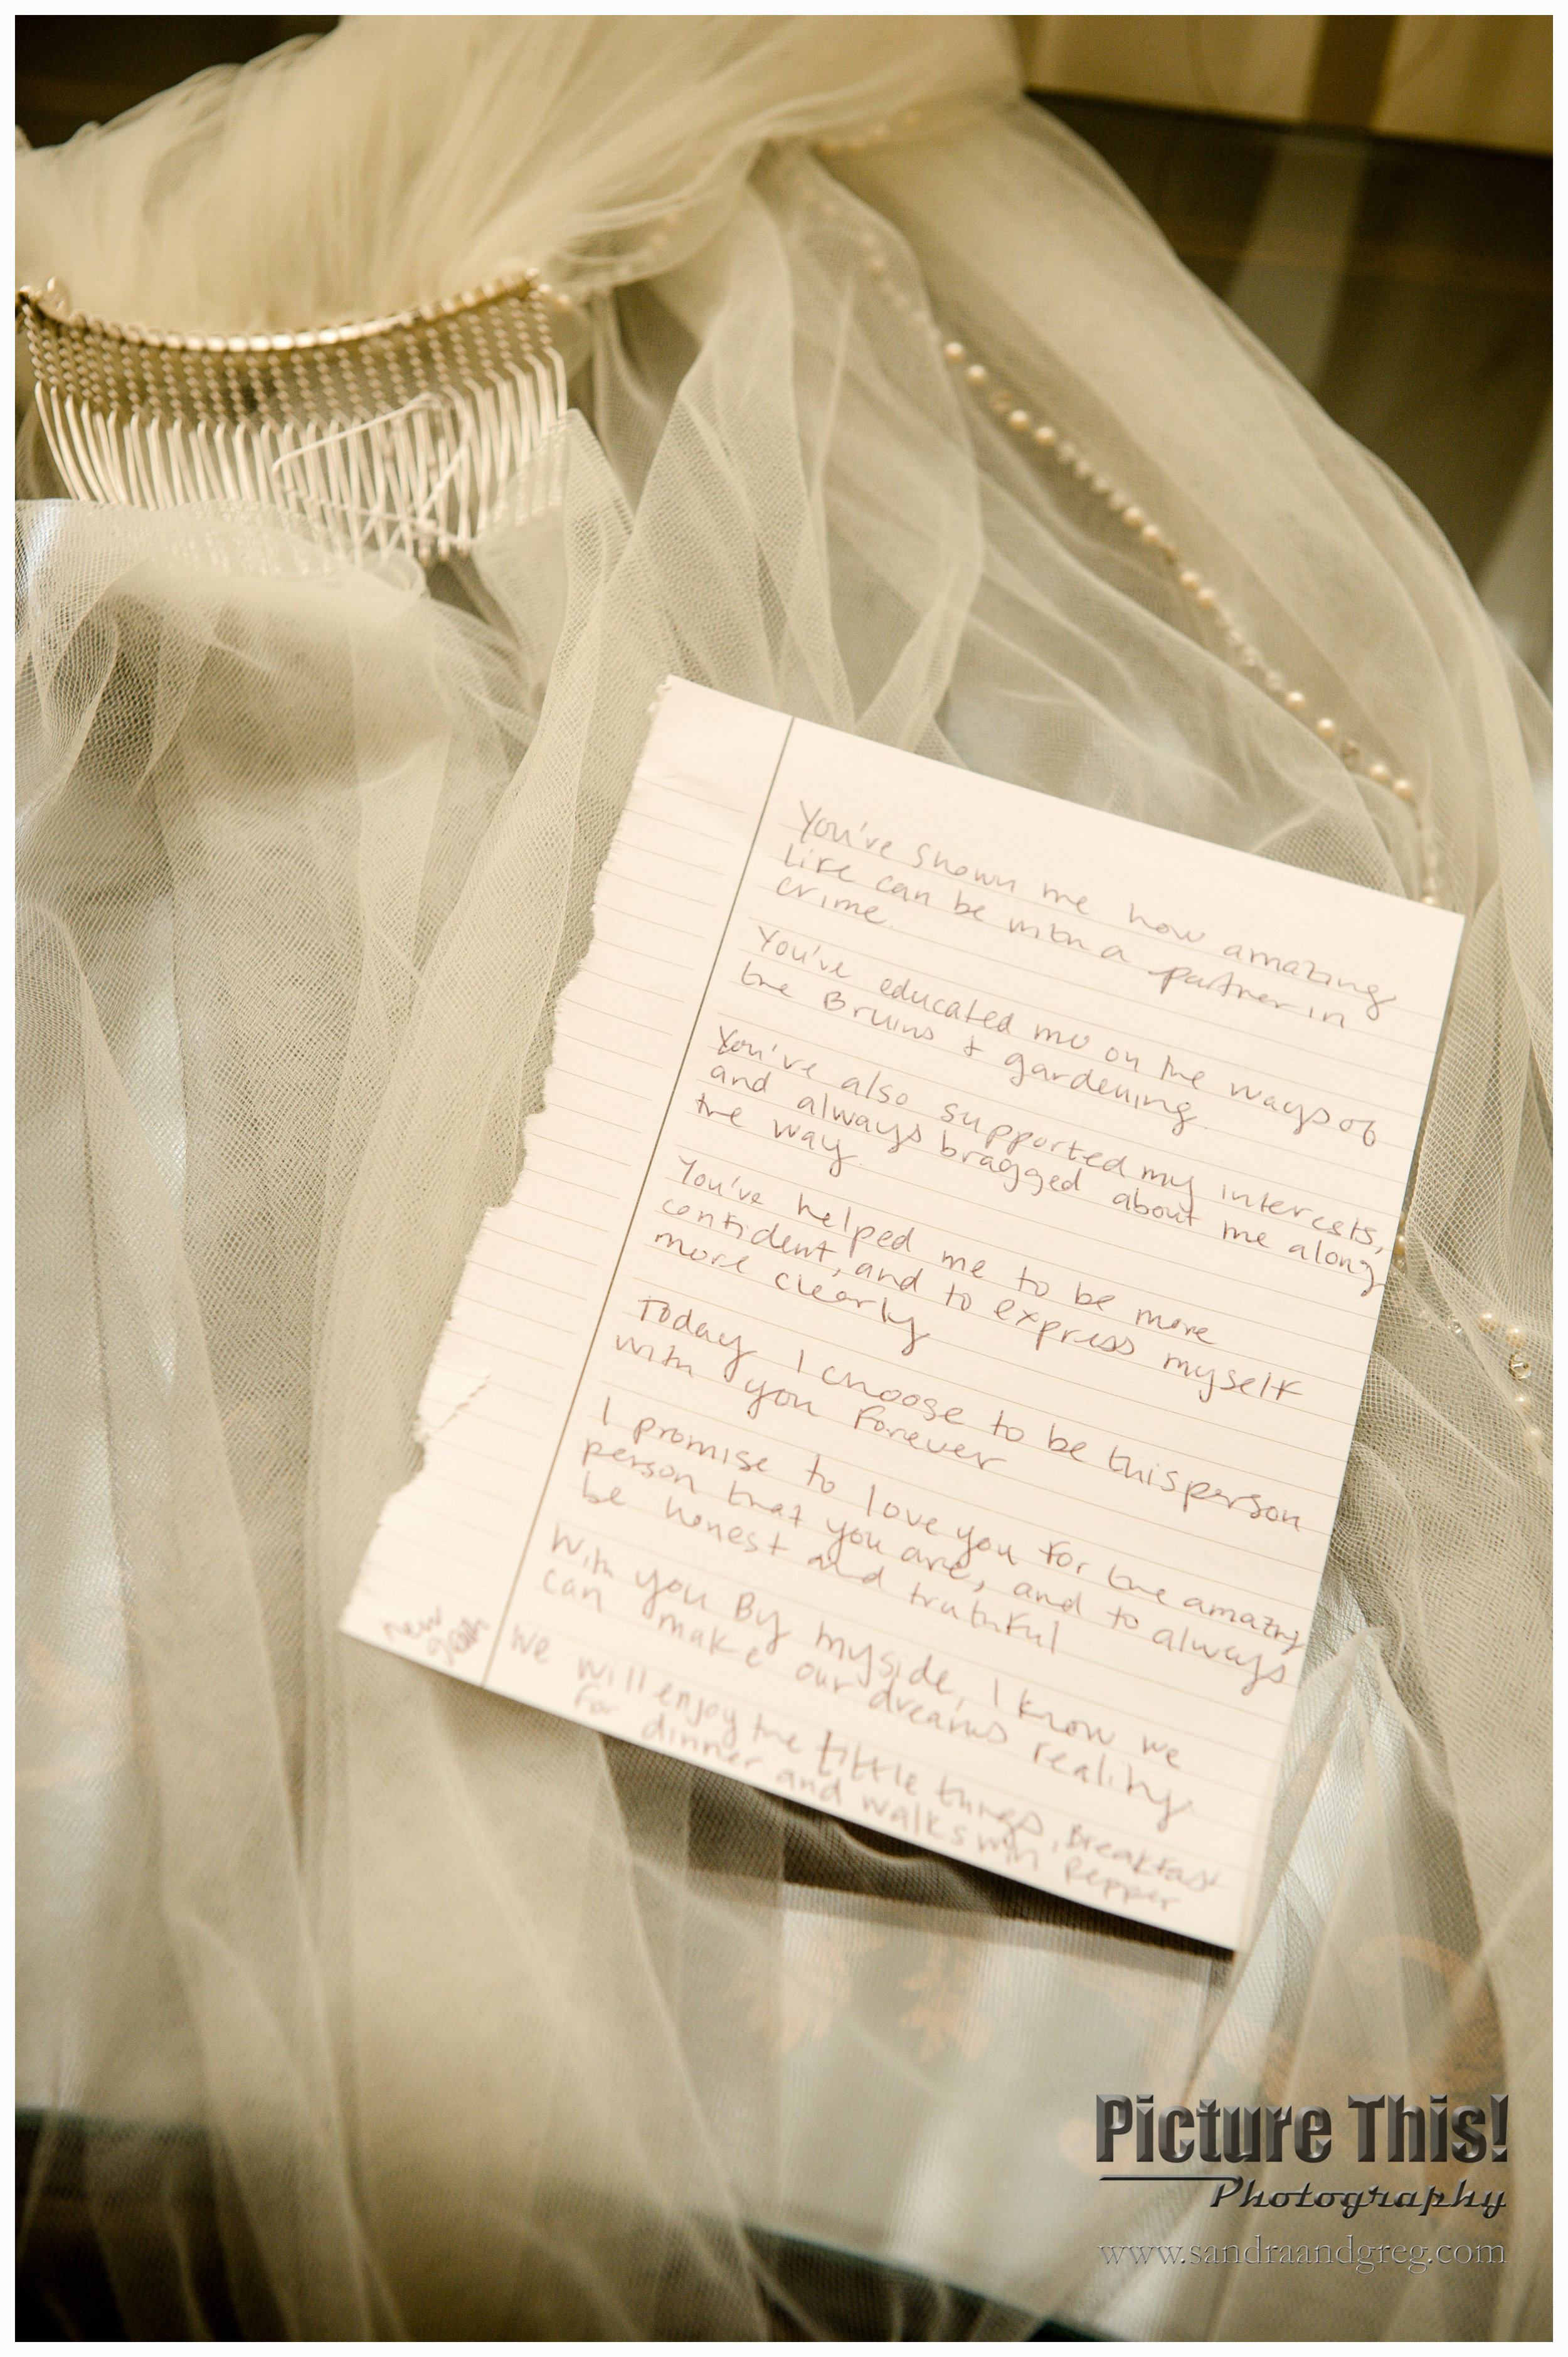 You've shown me how amazing
life can be with a partner in
crime.
You've educated me on the ways of
the Bruins + gardening.
You've also supported my interests,
and always bragged about me along
the way.
You've helped me to be more
confident, and to express myself
more clearly
Today I choose to be this person
with you forever
I promise to love you for the amazing
person that you are, and to always
be honest and truthful
With you By my side, I know we
can make our dreams reality.
new
We will enjoy the little things, Breakfast
for dinner and walks with Pepper
Picture This!
Photography
www.sandraandgreg.com